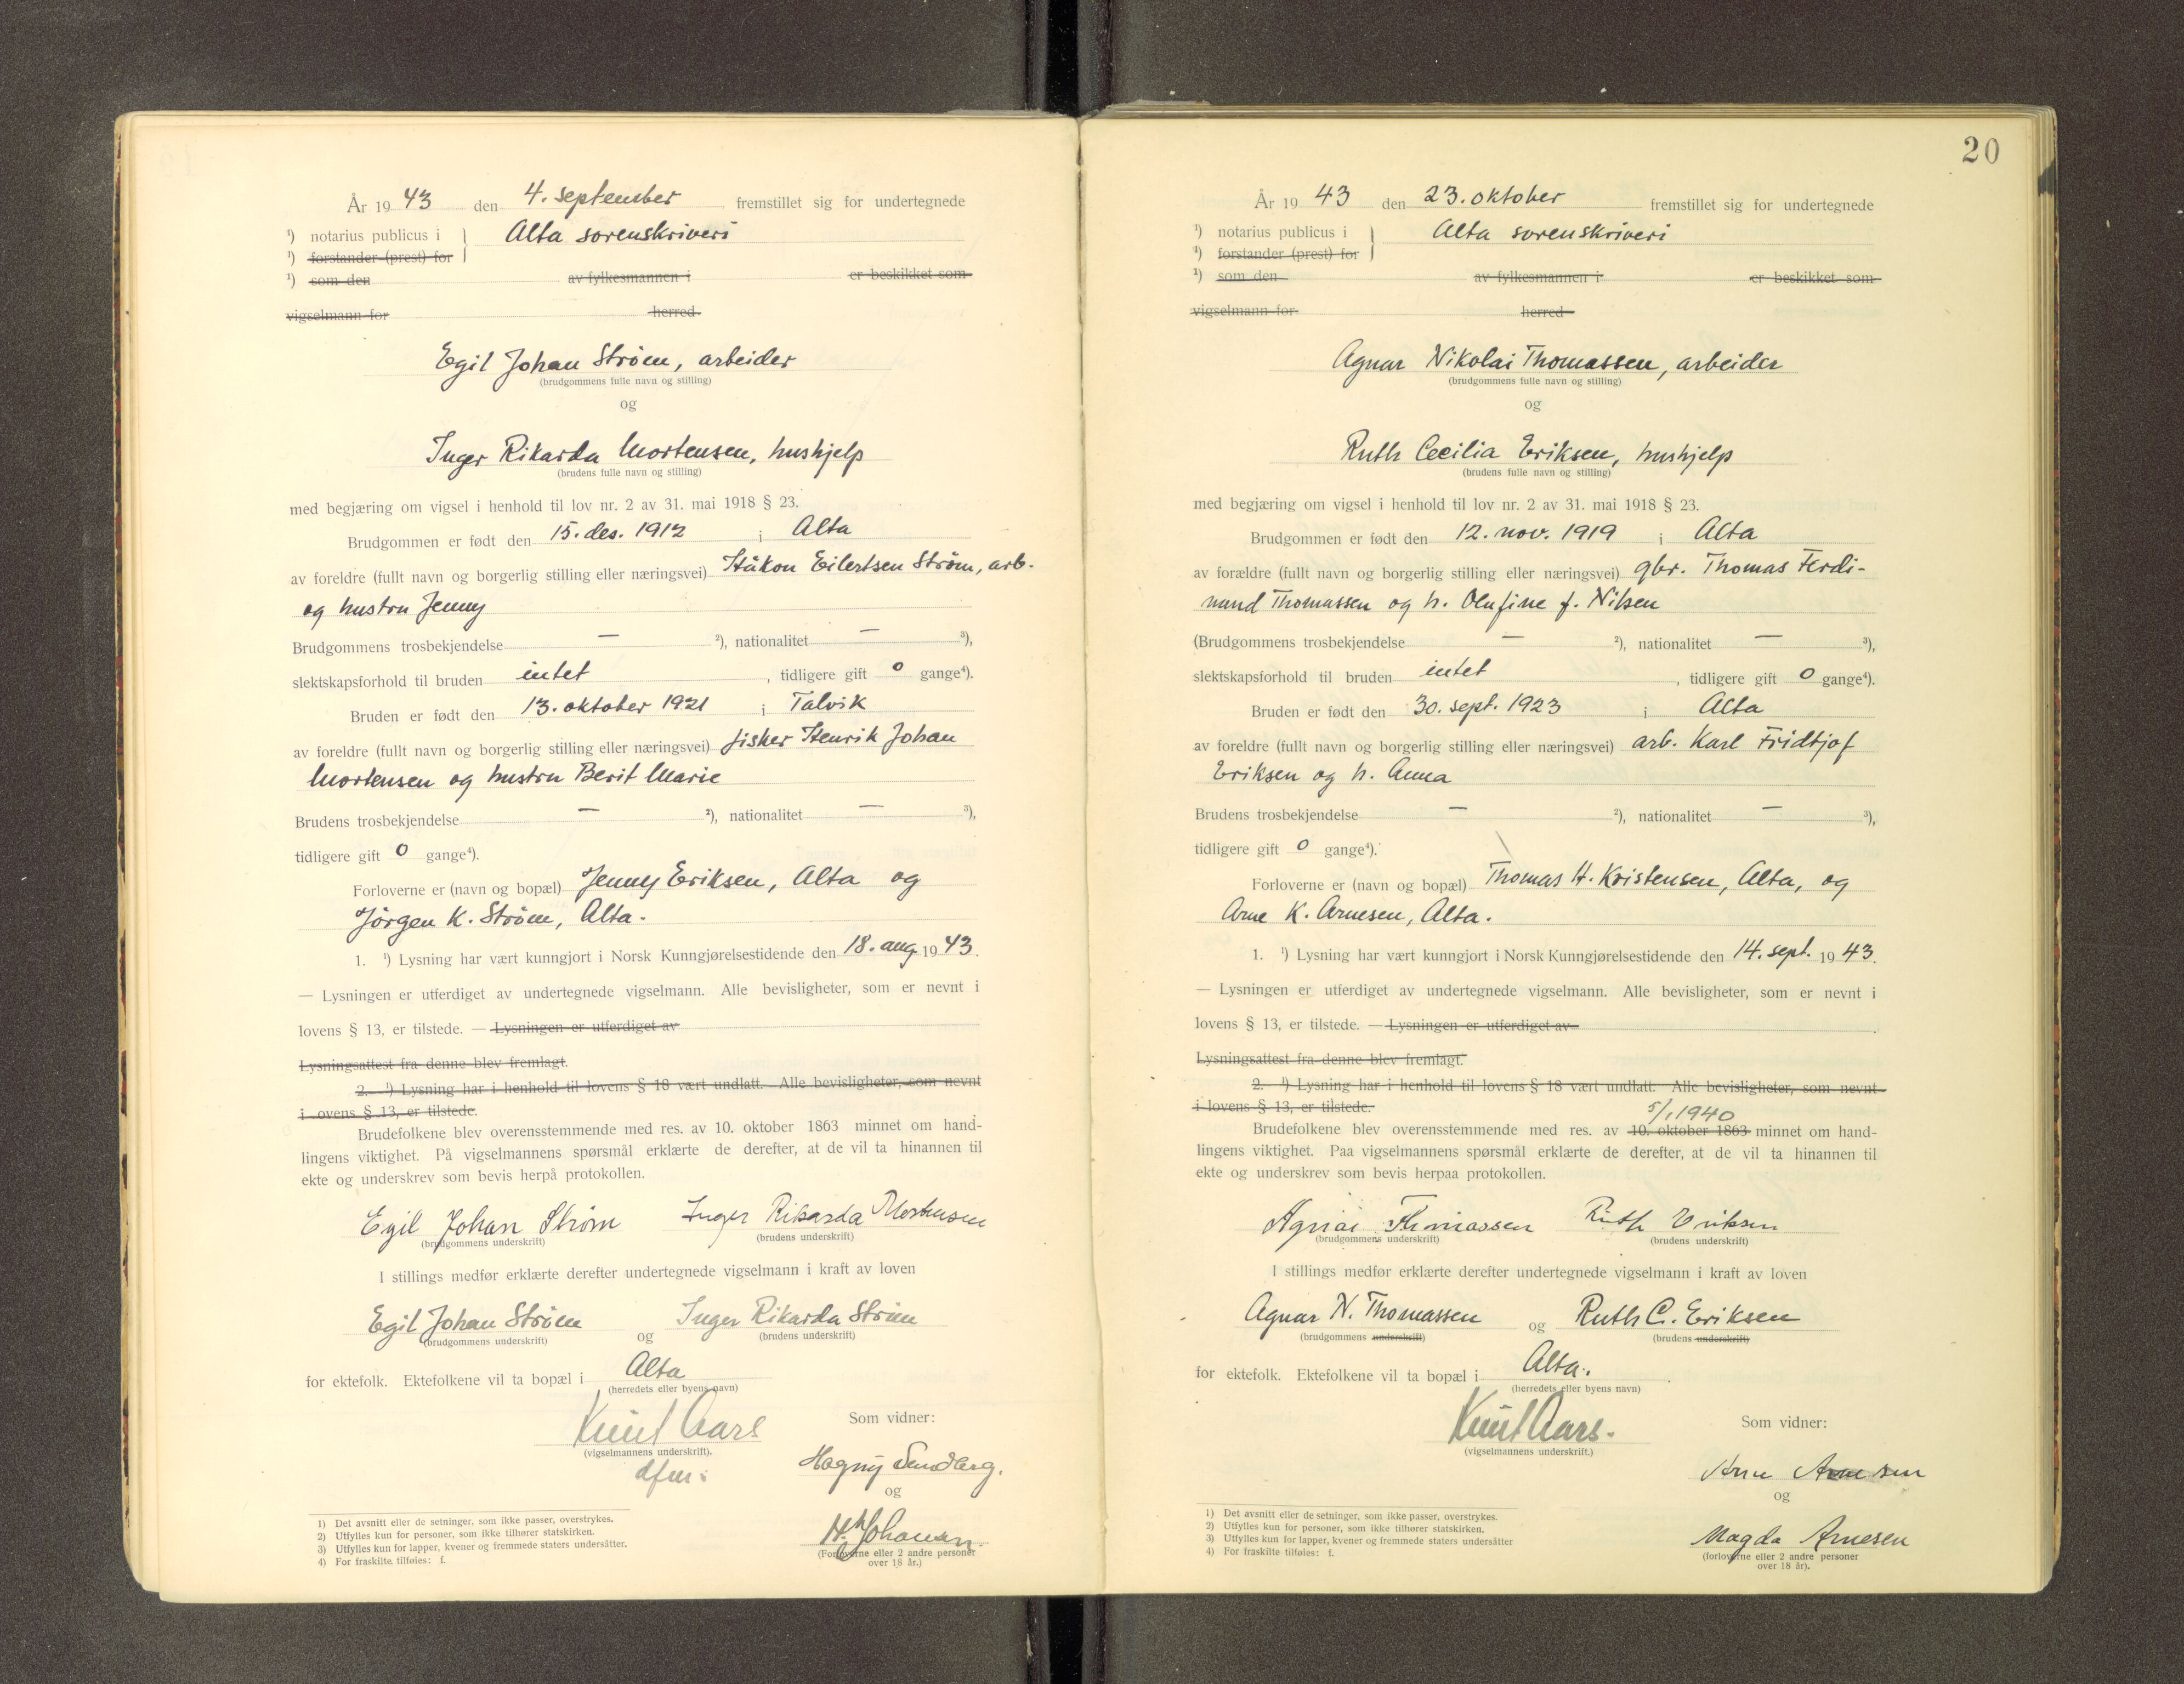 År 1943 den 4. september fremstillet sig for undertegnede
¹) notarius publicus i } Alta sorenskriveri
¹) forstander (prest) for
¹) som den av fylkesmannen i er beskikket som
vigselmann for herred
Egil Johan Strøm, arbeider
(brudgommens fulle navn og stilling)
og
Inger Rikarda Mortensen, hushjelp
(brudens fulle navn og stilling)
med begjæring om vigsel i henhold til lov nr. 2 av 31. mai 1918 § 23.
Brudgommen er født den 15. des. 1912 i Alta
av foreldre (fullt navn og borgerlig stilling eller næringsvei) Håkon Eilertsen Strøm, arb.
og hustru Jenny
Brudgommens trosbekjendelse — ²), nationalitet — ³),
slektskapsforhold til bruden intet, tidligere gift 0 gange⁴).
Bruden er født den 13. oktober 1921 i Talvik
av foreldre (fullt navn og borgerlig stilling eller næringsvei) fisker Henrik Johan
Mortensen og hustru Berit Marie
Brudens trosbekjendelse — ²), nationalitet — ³),
tidligere gift 0 gange⁴).
Forloverne er (navn og bopæl) Jenny Eriksen, Alta og
Jørgen K. Strøm, Alta.
1. ¹) Lysning har vært kunngjort i Norsk Kunngjørelsestidende den 18. aug. 1943.
— Lysningen er utferdiget av undertegnede vigselmann. Alle bevisligheter, som er nevnt i
lovens § 13, er tilstede. — Lysningen er utferdiget av
Lysningsattest fra denne blev fremlagt.
2. ¹) Lysning har i henhold til lovens § 18 vært undlatt. Alle bevisligheter, som nevnt
i ovens § 13, er tilstede.
Brudefolkene blev overensstemmende med res. av 10. oktober 1863 minnet om hand-
lingens viktighet. På vigselmannens spørsmål erklærte de derefter, at de vil ta hinannen til
ekte og underskrev som bevis herpå protokollen.
Egil Johan Strøm Inger Rikarda Mortensen
(brudgommens underskrift) (brudens underskrift)
I stillings medfør erklærte derefter undertegnede vigselmann i kraft av loven
Egil Johan Strøm og Inger Rikarda Strøm
(brudgommens underskrift) (brudens underskrift)
for ektefolk. Ektefolkene vil ta bopæl i Alta
(herredets eller byens navn)
Knut Aars Som vidner:
(vigselmannens underskrift).
dfm. Hagny Sundberg.
og
H. Johansen
(Forloverne eller 2 andre personer
over 18 år.)
1) Det avsnitt eller de setninger, som ikke passer, overstrykes.
2) Utfylles kun for personer, som ikke tilhører statskirken.
3) Utfylles kun for lapper, kvener og fremmede staters undersåtter.
4) For fraskilte tilføies: f.
20
År 1943 den 23. oktober fremstillet sig for undertegnede
¹) notarius publicus i } Alta sorenskriveri
¹) forstander (prest) for
¹) som den av fylkesmannen i er beskikket som
vigselmann for herred
Agnar Nikolai Thomassen, arbeider
(brudgommens fulle navn og stilling)
og
Ruth Cecilia Eriksen, hushjelp
(brudens fulle navn og stilling)
med begjæring om vigsel i henhold til lov nr. 2 av 31. mai 1918 § 23.
Brudgommen er født den 12. nov. 1919 i Alta
av forældre (fullt navn og borgerlig stilling eller næringsvei) gbr. Thomas Ferdi-
nand Thomassen og h. Olufine f. Nilsen
(Brudgommens trosbekjendelse — ²), nationalitet — ³),
slektskapsforhold til bruden intet, tidligere gift 0 gange⁴).
Bruden er født den 30. sept. 1923 i Alta
av foreldre (fullt navn og borgerlig stilling eller næringsvei) arb. Karl Fridtjof
Eriksen og h. Anna
Brudens trosbekjendelse — ²), nationalitet — ³),
tidligere gift 0 gange⁴).
Forloverne er (navn og bopæl) Thomas H. Kristensen, Alta, og
Arne K. Arnesen, Alta.
1. ¹) Lysning har vært kunngjort i Norsk Kunngjørelsestidende den 14. sept. 1943.
— Lysningen er utferdiget av undertegnede vigselmann. Alle bevisligheter, som er nevnt i
lovens § 13, er tilstede. — Lysningen er utferdiget av
Lysningsattest fra denne blev fremlagt.
2. ¹) Lysning har i henhold til lovens § 18 vært undlatt. Alle bevisligheter, som nevnt
i lovens § 13, er tilstede.
5/1 1940
Brudefolkene blev overensstemmende med res. av 10. oktober 1863 minnet om hand-
lingens viktighet. Paa vigselmannens spørsmål erklærte de derefter, at de vil ta hinannen til
ekte og underskrev som bevis herpaa protokollen.
Agnar Thomassen Ruth Eriksen
(brudgommens underskrift) (brudens underskrift)
I stillings medfør erklærte derefter undertegnede vigselmann i kraft av loven
Agnar N. Thomassen og Ruth C. Eriksen
(brudgommens underskrift) (brudens underskrift)
for ektefolk. Ektefolkene vil ta bopæl i Alta.
(herredets eller byens navn)
Knut Aars. Som vidner:
(vigselmannens underskrift.)
Arne Arnesen
og
Magda Arnesen
(forloverne eller 2 andre personer
over 18 år).
1) Det avsnitt eller de setninger, som ikke passer, overstrykes.
2) Utfylles kun for personer, som ikke tilhører statskirken.
3) Utfylles kun for lapper, kvener og fremmede staters undersåtter
4) For fraskilte tilføies: f.